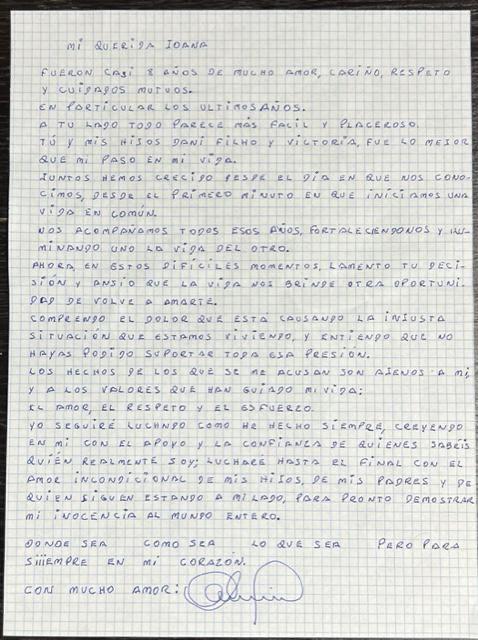 MI QUERIDA JOANA
FUERON CASI 8 AÑOS DE MUCHO AMOR, CARIÑO, RESPETO
Y CUIDADOS MUTUOS.
EN PARTICULAR LOS ULTIMOS AÑOS.
A TU LADO TODO PARECE MÁS FACIL Y PLACEROSO.
TÚ Y MIS HIJOS DANI FILHO Y VICTORIA, FUE LO MEJOR
QUE MI PASO EN MI VIDA.
JUNTOS HEMOS CRECIDO DESDE EL DÍA EN QUE NOS CONO-
CIMOS, DESDE EL PRIMERO MINUTO EN QUE INICIAMOS UNA
VIDA EN COMÚN.
NOS ACOMPAÑAMOS TODOS ESOS AÑOS, FORTALECIENDONOS Y ILU-
MINANDO UNO LA VIDA DEL OTRO.
AHORA, EN ESTOS DIFÍCILES MOMENTOS, LAMENTO TU DECI-
SIÓN Y ANSIO QUE LA VIDA NOS BRINDE OTRA OPORTUNI-
DAD DE VOLVE A AMARTE.
COMPRENDO EL DOLOR QUE ESTÁ CAUSANDO LA INJUSTA
SITUACIÓN QUE ESTAMOS VIVIENDO, Y ENTIENDO QUE NO
HAYAS PODIDO SUPORTAR TODA ESA PRESIÓN.
LOS HECHOS DE LOS QUE SE ME ACUSAN SON AJENOS A MÍ,
Y A LOS VALORES QUE HAN GUIADO MI VIDA:
EL AMOR, EL RESPETO Y EL ESFUERZO.
YO SEGUIRÉ LUCHNDO COMO HE HECHO SIEMPRE, CREYENDO
EN MI CON EL APOYO Y LA CONFIANZA DE QUIENES SABÉIS
QUIÉN REALMENTE SOY; LUCHARÉ HASTA EL FINAL CON EL
AMOR INCONDICIONAL DE MIS HIJOS, DE MIS PADRES Y DE
QUIEN SIGUEN ESTANDO A MI LADO, PARA PRONTO DEMOSTRAR
MI INOCENCIA AL MUNDO ENTERO.
DONDE SEA COMO SEA LO QUE SEA PERO PARA
SIIIEMPRE EN MI CORAZÓN.
CON MUCHO AMOR: